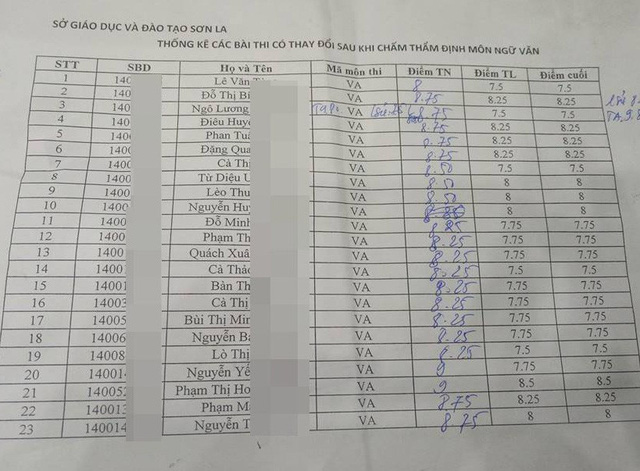 SỞ GIÁO DỤC VÀ ĐÀO TẠO SƠN LA
THỐNG KÊ CÁC BÀI THI CÓ THAY ĐỔI SAU KHI CHẤM THẨM ĐỊNH MÔN NGỮ VĂN
STT SBD Họ và Tên Mã môn thi Điểm TN Điểm TL Điểm cuối
1 140 Lê Văn VA 8 7.5 7.5
2 140 Đỗ Thị Bí VA 8.75 8.25 8.25
3 140 Ngô Lương VA 8.75 7.5 7.5
4 140 Điêu Huyề VA 8.75 8.25 8.25
5 140 Phan Tuấ VA 8.75 8.25 8.25
6 140 Đặng Qua VA 8.75 8.25 8.25
7 140 Cà Thị VA 8.50 7.5 7.5
8 140 Từ Diệu VA 8.50 8 8
9 1400 Lèo Thu VA 8.50 8 8
10 1400 Nguyễn Huy VA 8 8
11 1400 Đỗ Minh VA 8.25 7.75 7.75
12 1400 Phạm Th VA 8.25 7.75 7.75
13 1400 Quách Xuâ VA 8.25 7.75 7.75
14 1400 Cà Thảo VA 8.25 7.5 7.5
15 14001 Bàn Th VA 8.25 7.75 7.75
16 14003 Cà Thị VA 8.25 7.75 7.75
17 14005 Bùi Thị Min VA 8.25 7.75 7.75
18 14006 Nguyễn Bả VA 8.25 7.75 7.75
19 14008 Lò Thị VA 8.25 7.5 7.5
20 14001 Nguyễn Yế VA 9 7.75 7.75
21 14005 Phạm Thị Ho VA 9 8.5 8.5
22 140013 Phạm M VA 8.75 8.25 8.25
23 140014 Nguyễn T VA 8.75 8 8